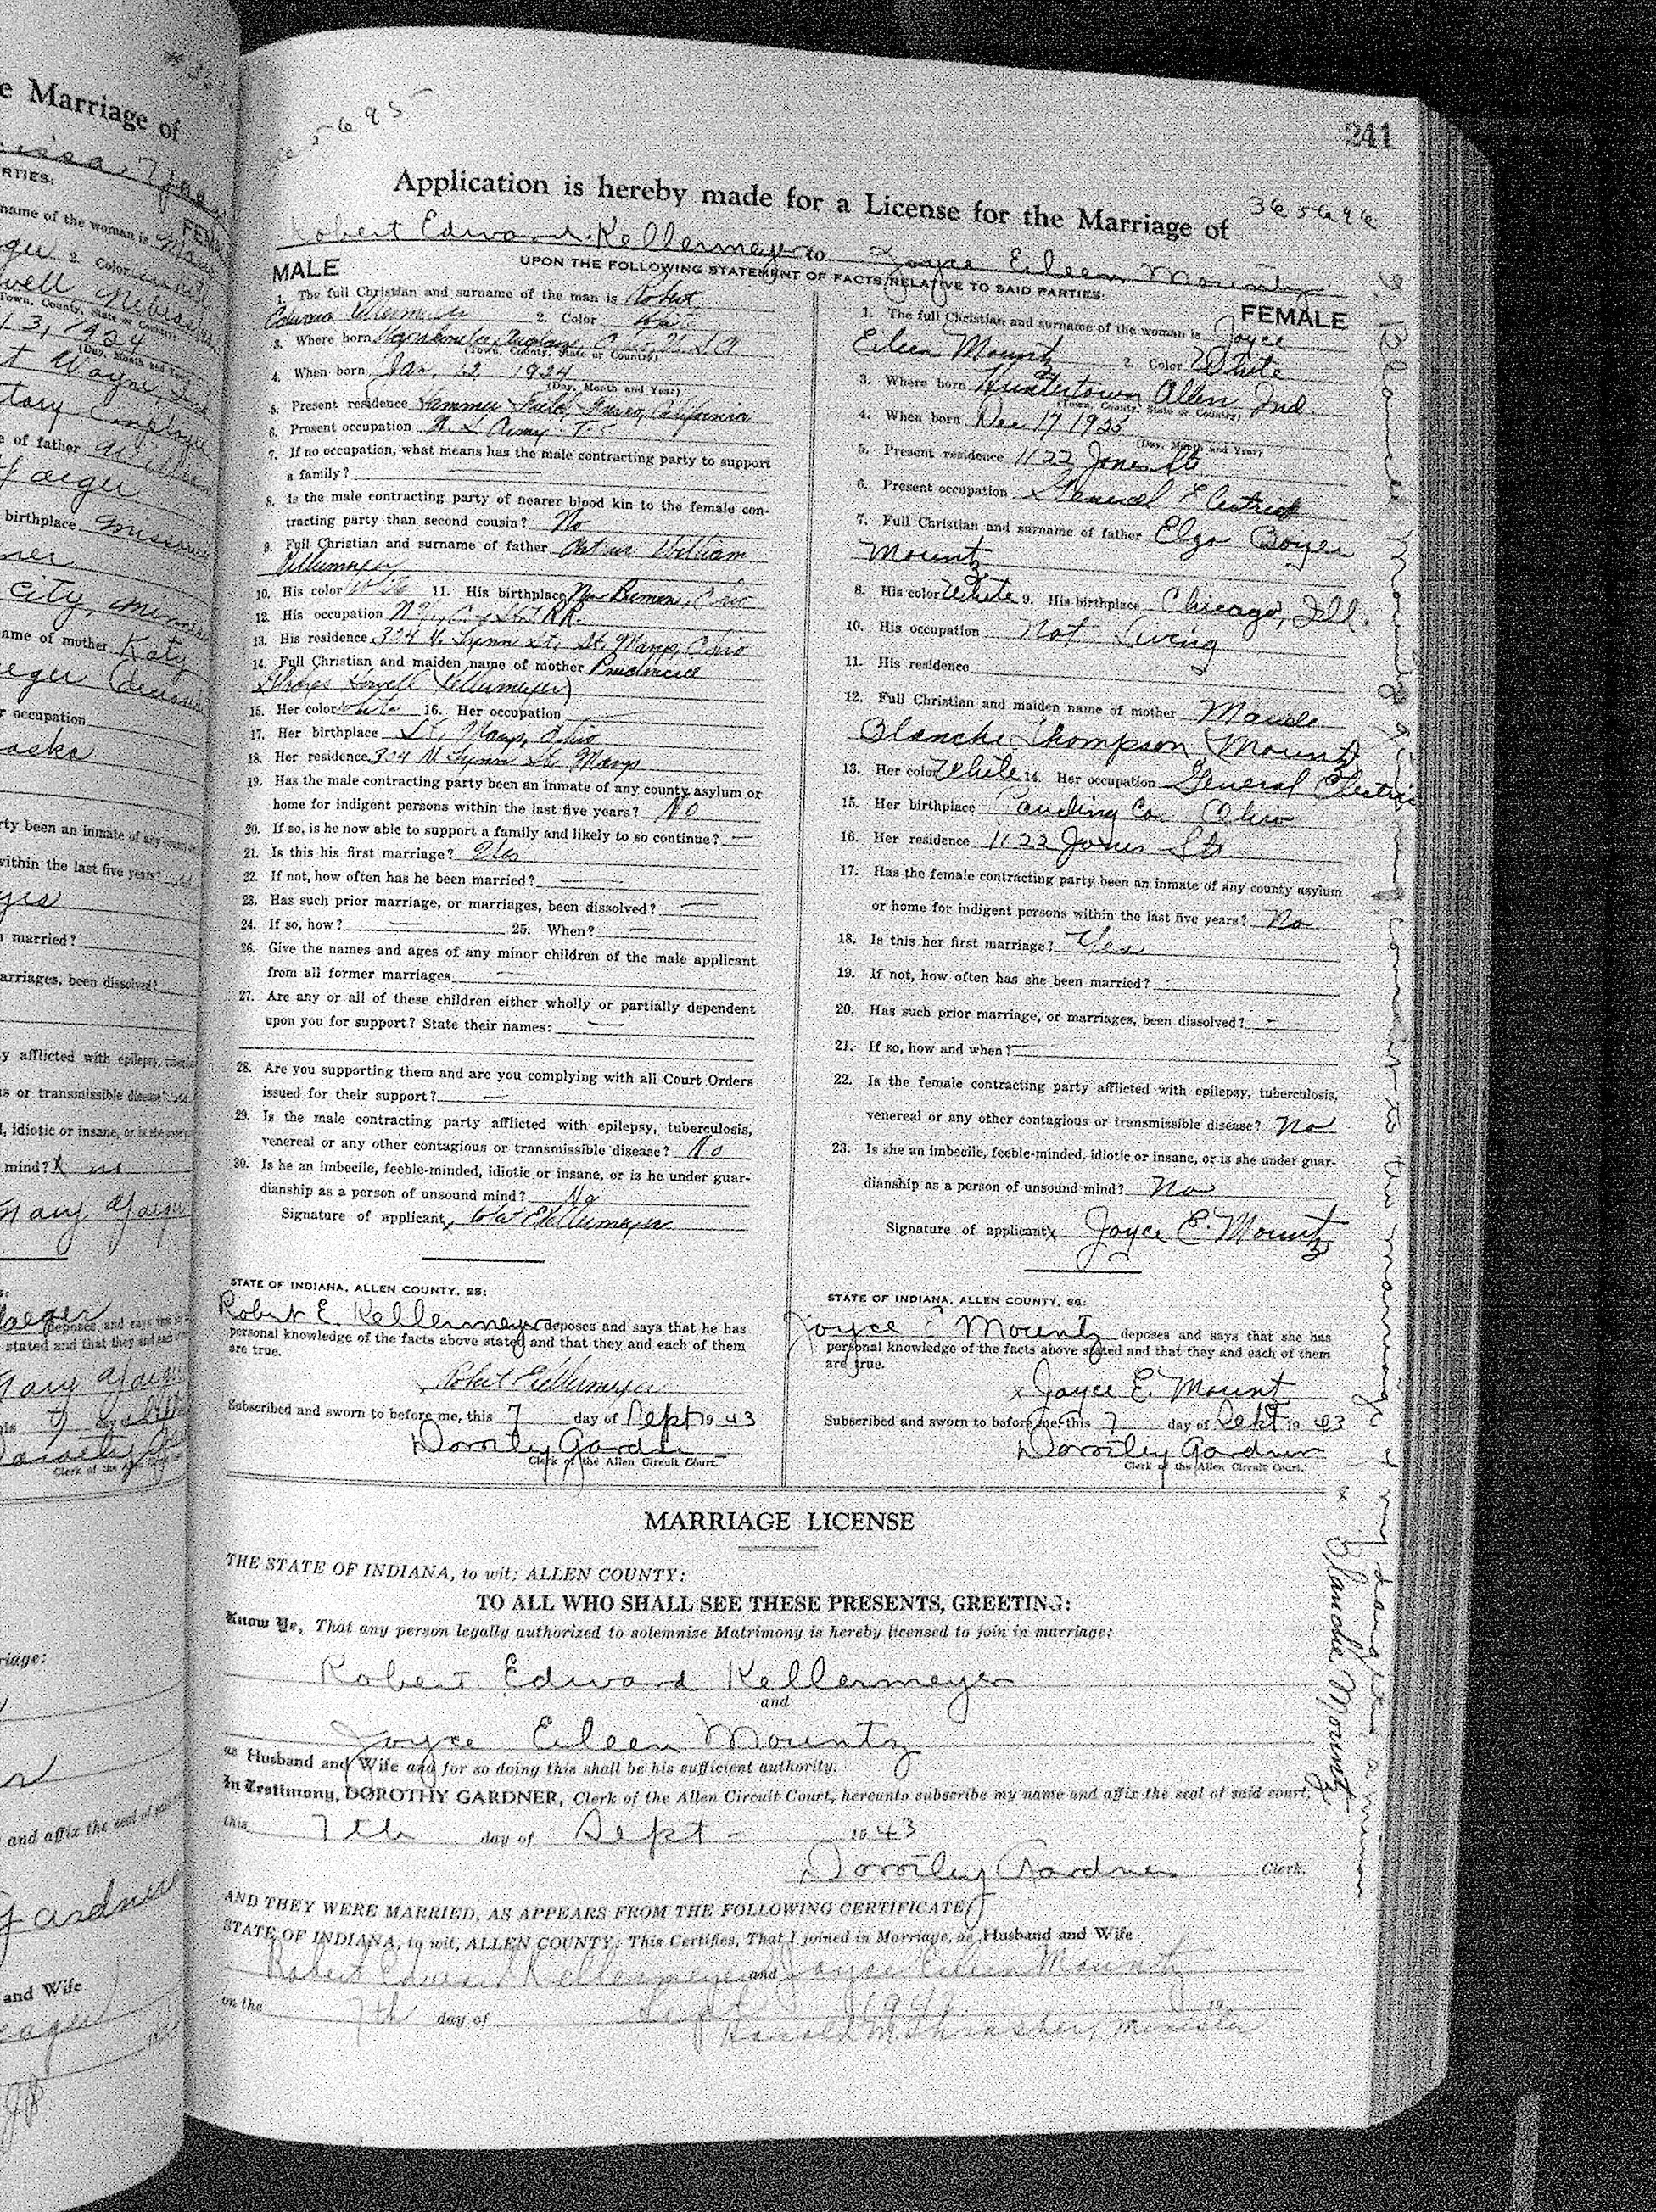 e Marriage of
RTIES:
FEM
name of the woman is
2. Color
Town, County, State or Country
13, 1924
(Day, Month and
t Wayne, Ind
e of father William
birthplace Missouri
city,
name of mother Katy
r occupation
aska
rty been an inmate of any county
within the last five years?
yes
married?
arriages, been dissolved?
y afflicted with epilepsy,
s or transmissible disease?
, idiotic or insane, or is she
mind? X no
deposes and says
stated and that they and
day of
Clerk of the
riage:
and affix the seal of
Gardner
and Wife
241
5695
Application is hereby made for a License for the Marriage of
365696
Robert Edward Kellermeyer to Joyce Eileen Mountz
UPON THE FOLLOWING STATEMENT OF FACTS RELATIVE TO SAID PARTIES:
MALE
1. The full Christian and surname of the man is Robert
Edward Kellermeyer 2. Color White
3. Where born Auglaize, Ohio U.S.A.
(Town, County, State or Country)
4. When born Jan. 12 1924
(Day, Month and Year)
5. Present residence Hammer Field, Fresno, California
6. Present occupation U.S. Army
7. If no occupation, what means has the male contracting party to support
a family?
8. Is the male contracting party of nearer blood kin to the female con-
tracting party than second cousin? No
9. Full Christian and surname of father William
Kellermeyer
10. His color White 11. His birthplace New Bremen, Ohio
12. His occupation R.R.
13. His residence 334 N. Lynn St, St. Marys, Ohio
14. Full Christian and maiden name of mother
Kellermeyer)
15. Her color White 16. Her occupation
17. Her birthplace St. Marys, Ohio
18. Her residence 334 N Lynn St Marys
19. Has the male contracting party been an inmate of any county asylum or
home for indigent persons within the last five years? No
20. If so, is he now able to support a family and likely to so continue? —
21. Is this his first marriage? Yes
22. If not, how often has he been married? —
23. Has such prior marriage, or marriages, been dissolved? —
24. If so, how? — 25. When? —
26. Give the names and ages of any minor children of the male applicant
from all former marriages —
27. Are any or all of these children either wholly or partially dependent
upon you for support? State their names: —
28. Are you supporting them and are you complying with all Court Orders
issued for their support? —
29. Is the male contracting party afflicted with epilepsy, tuberculosis,
venereal or any other contagious or transmissible disease? No
30. Is he an imbecile, feeble-minded, idiotic or insane, or is he under guar-
dianship as a person of unsound mind? No
Signature of applicant Robt E Kellermeyer
STATE OF INDIANA, ALLEN COUNTY, SS:
Robert E. Kellermeyer deposes and says that he has
personal knowledge of the facts above stated and that they and each of them
are true.
Robert E Kellermeyer
Subscribed and sworn to before me, this 7 day of Sept 1943
Dorothy Gardner
Clerk of the Allen Circuit Court.
FEMALE
1. The full Christian and surname of the woman is Joyce
Eileen Mountz 2. Color White
3. Where born Huntertown Allen Ind.
(Town, County, State or Country)
4. When born Dec 17 1925
(Day, Month and Year)
5. Present residence 1122 Jones St.
6. Present occupation General Electric
7. Full Christian and surname of father Elza Boyer
Mountz
8. His color White 9. His birthplace Chicago, Ill.
10. His occupation Not Living
11. His residence
12. Full Christian and maiden name of mother Maude
Blanche Thompson (Mountz)
13. Her color White 14. Her occupation General Electric
15. Her birthplace Paulding Co. Ohio
16. Her residence 1122 Jones St.
17. Has the female contracting party been an inmate of any county asylum
or home for indigent persons within the last five years? No
18. Is this her first marriage? Yes
19. If not, how often has she been married? -
20. Has such prior marriage, or marriages, been dissolved? -
21. If so, how and when? —
22. Is the female contracting party afflicted with epilepsy, tuberculosis,
venereal or any other contagious or transmissible disease? No
23. Is she an imbecile, feeble-minded, idiotic or insane, or is she under guar-
dianship as a person of unsound mind? No
Signature of applicant x Joyce E. Mountz
STATE OF INDIANA, ALLEN COUNTY, SS:
Joyce E Mountz deposes and says that she has
personal knowledge of the facts above stated and that they and each of them
are true.
x Joyce E. Mount
Subscribed and sworn to before me, this 7 day of Sept 1943
Dorothy Gardner
Clerk of the Allen Circuit Court.
I, Blanche Mountz consent to this marriage of my daughter, a minor
x Blanche Mountz
MARRIAGE LICENSE
THE STATE OF INDIANA, to wit: ALLEN COUNTY:
TO ALL WHO SHALL SEE THESE PRESENTS, GREETING:
Know Ye, That any person legally authorized to solemnize Matrimony is hereby licensed to join in marriage:
Robert Edward Kellermeyer
and
Joyce Eileen Mountz
as Husband and Wife and for so doing this shall be his sufficient authority.
In Testimony, DOROTHY GARDNER, Clerk of the Allen Circuit Court, hereunto subscribe my name and affix the seal of said court,
this 7th day of Sept 1943
Dorothy Gardner Clerk.
AND THEY WERE MARRIED, AS APPEARS FROM THE FOLLOWING CERTIFICATE
STATE OF INDIANA, to wit, ALLEN COUNTY: This Certifies, That I joined in Marriage, as Husband and Wife
Robert Edward Kellermeyer and Joyce Eileen Mountz
on the 7th day of Sept 1943 19
Harold M. Thrasher, Minister